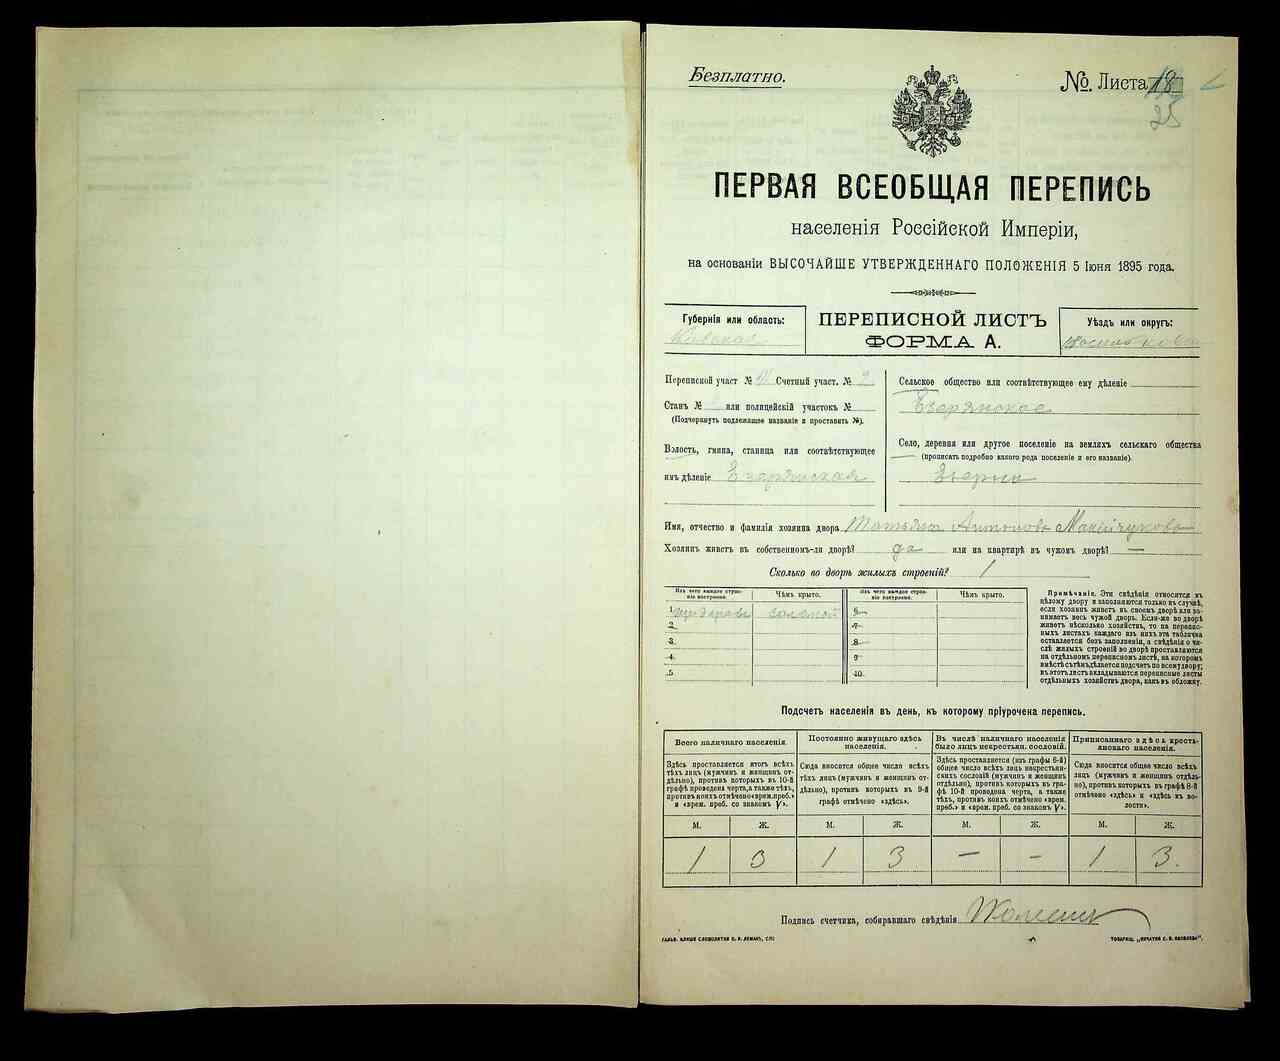 Безплатно.
№ Листа 18
25
ПЕРВАЯ ВСЕОБЩАЯ ПЕРЕПИСЬ
населенія Россійской Имперіи,
на основаніи ВЫСОЧАЙШЕ УТВЕРЖДЕННАГО ПОЛОЖЕНІЯ 5 Іюня 1895 года.
Губернія или область:
Кіевская
ПЕРЕПИСНОЙ ЛИСТЪ
ФОРМА А.
Уѣздъ или округъ:
Переписной участ № Счетный участ. № 2
Станъ № или полицейскій участокъ №
(Подчеркнуть подлежащее названіе и проставить №).
Волость, гмина, станица или соотвѣтствующее
имъ дѣленіе Езерянская
Сельское общество или соотвѣтствующее ему дѣленіе
Езерянское
Село, деревня или другое поселеніе на земляхъ сельскаго общества
(прописать подробно какого рода поселеніе и его названіе).
Езерна
Имя, отчество и фамилія хозяина двора Татьяна Антонова Манзчукова
Хозяинъ живетъ въ собственномъ-ли дворѣ? да или на квартирѣ въ чужомъ дворѣ? —
Сколько во дворѣ жилыхъ строеній? 1
Изъ чего каждое строеніе построено. Чѣмъ крыто. Изъ чего каждое строеніе построено. Чѣмъ крыто.
1 соломой 6
2 7
3 8
4 9
5 10
Примѣчанія. Эти свѣдѣнія относятся къ
цѣлому двору и заполняются только въ случаѣ,
если хозяинъ живетъ въ своемъ дворѣ или за-
нимаетъ весь чужой дворъ. Если-же во дворѣ
живетъ нѣсколько хозяйствъ, то на перепис-
ныхъ листахъ каждаго изъ нихъ эта табличка
оставляется безъ заполненія, а свѣдѣнія о чи-
слѣ жилыхъ строеній во дворѣ проставляются
на отдѣльномъ переписномъ листѣ, на которомъ
вмѣстѣ съ тѣмъ дѣлается подсчетъ по всему двору;
въ этотъ листъ вкладываются переписные листы
отдѣльныхъ хозяйствъ двора, какъ въ обложку.
Подсчетъ населенія въ день, къ которому пріурочена перепись.
Всего наличнаго населенія.
Здѣсь проставляется итогъ всѣхъ
тѣхъ лицъ (мужчинъ и женщинъ от-
дѣльно), противъ которыхъ въ 10-й
графѣ проведена черта, а также тѣхъ,
противъ коихъ отмѣчено «врем. преб.»
и «врем. преб. со знакомъ V».
Постоянно живущаго здѣсь
населенія.
Сюда вносится общее число всѣхъ
тѣхъ лицъ (мужчинъ и женщинъ от-
дѣльно), противъ которыхъ въ 9-й
графѣ отмѣчено «здѣсь».
Въ числѣ наличнаго населенія
было лицъ некрестьян. сословій.
Здѣсь проставляется (изъ графы 6-й)
общее число всѣхъ лицъ некрестьян-
скихъ сословій (мужчинъ и женщинъ
отдѣльно), противъ которыхъ въ гра-
фѣ 10-й проведена черта, а также
тѣхъ, противъ коихъ отмѣчено «врем.
преб.» и «врем. преб. со знакомъ V».
Приписаннаго здѣсь кресть-
янскаго населенія.
Сюда вносится общее число всѣхъ
лицъ (мужчинъ и женщинъ отдѣль-
но), противъ которыхъ въ графѣ 8-й
отмѣчено «здѣсь» и «здѣсь въ во-
лости».
М. Ж. М. Ж. М. Ж. М. Ж.
1 3 1 3 — — 1 3.
Подпись счетчика, собиравшаго свѣдѣнія
ГАЛЬВ. КЛИШЕ СЛОВОЛИТНИ О. И. ЛЕМАНЪ, СПБ
ТОВАРИЩ. „ПЕЧАТНЯ С. П. ЯКОВЛЕВА".